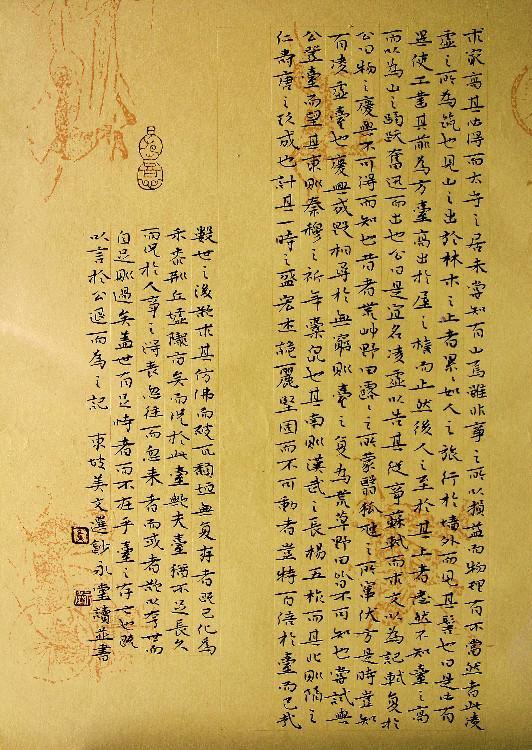 求家高其必得而太守之居未嘗知有山焉雖非事之所以損益而物理有不當然者此凌
虛之所為筑也見山之出於林木之上者累々如人之旅行於墻外而見其髻也曰是必有
異使工鑿其前為方臺高出於屋之檐而止然後人之至於其上者恍然不知臺之高
而以為山之踴躍奮迅而出也公曰是宜名凌虛以告其從事蘇軾而求文以為記軾复於
公曰物之廢興不可得而知也昔者荒艸野田露之所蒙翳狐虺之所竄伏方是時豈知
有凌虛臺也廢興成毀相尋於無窮則臺之复為荒草野田皆不可知也嘗試與
公登臺而望其東則秦穆之祈年橐泉也其南則漢武之長楊五柞而其北則隋之
仁壽唐之玖成也計其一時之盛宏杰詭麗堅固而不可動者豈特百倍於臺而已哉
數世之後欲求其仿佛而破瓦頹垣無复存者既已化為
禾黍荊丘墟隴畝矣而況於此臺歟夫臺猶不足長久
而況於人事之得喪忽往而忽來者而或者欲以夸世而
自足則過矣蓋世有足恃者而不在乎臺之存亡也既
以言於公退而為之記 東坡美文選鈔永堂讀並書